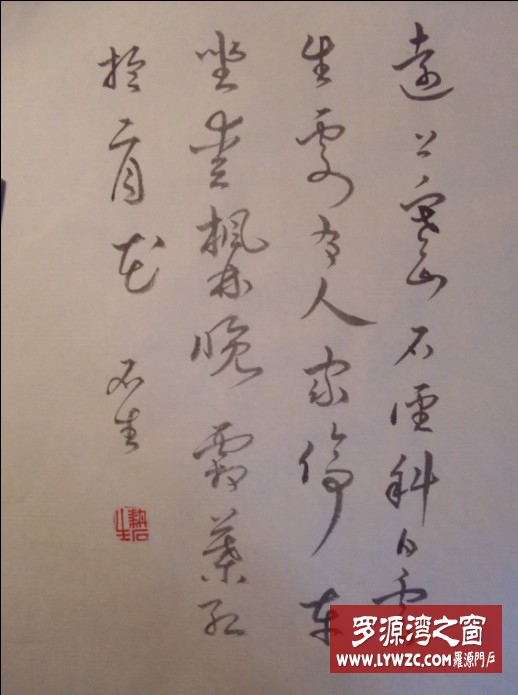 遠上寒山石徑斜白雲
生處有人家停車
坐愛楓林晚霜葉紅
於二月花 石生
罗源湾之窗
WWW.LYWZC.COM 羅源門戶